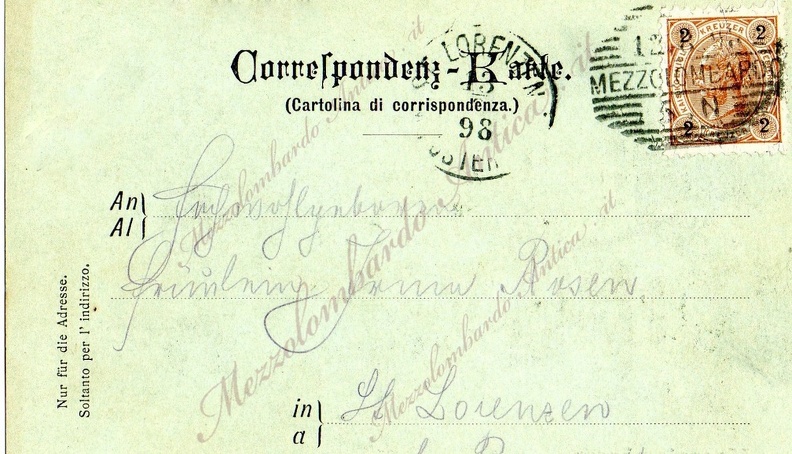 Correspondenz-Karte.
(Cartolina di corrispondenza.)
LORENZEN
13
98
MEZZOLOMBARDO
2 KREUZER 2
2 2
An
Al
Hochwohlgeboren
Fräulein Irma Rosen
in St Lorenzen
a
Nur für die Adresse.
Soltanto per l' indirizzo.
Mezzolombardo Antica . it
Mezzolombardo Antica . it
Mezzolombardo Antica . it